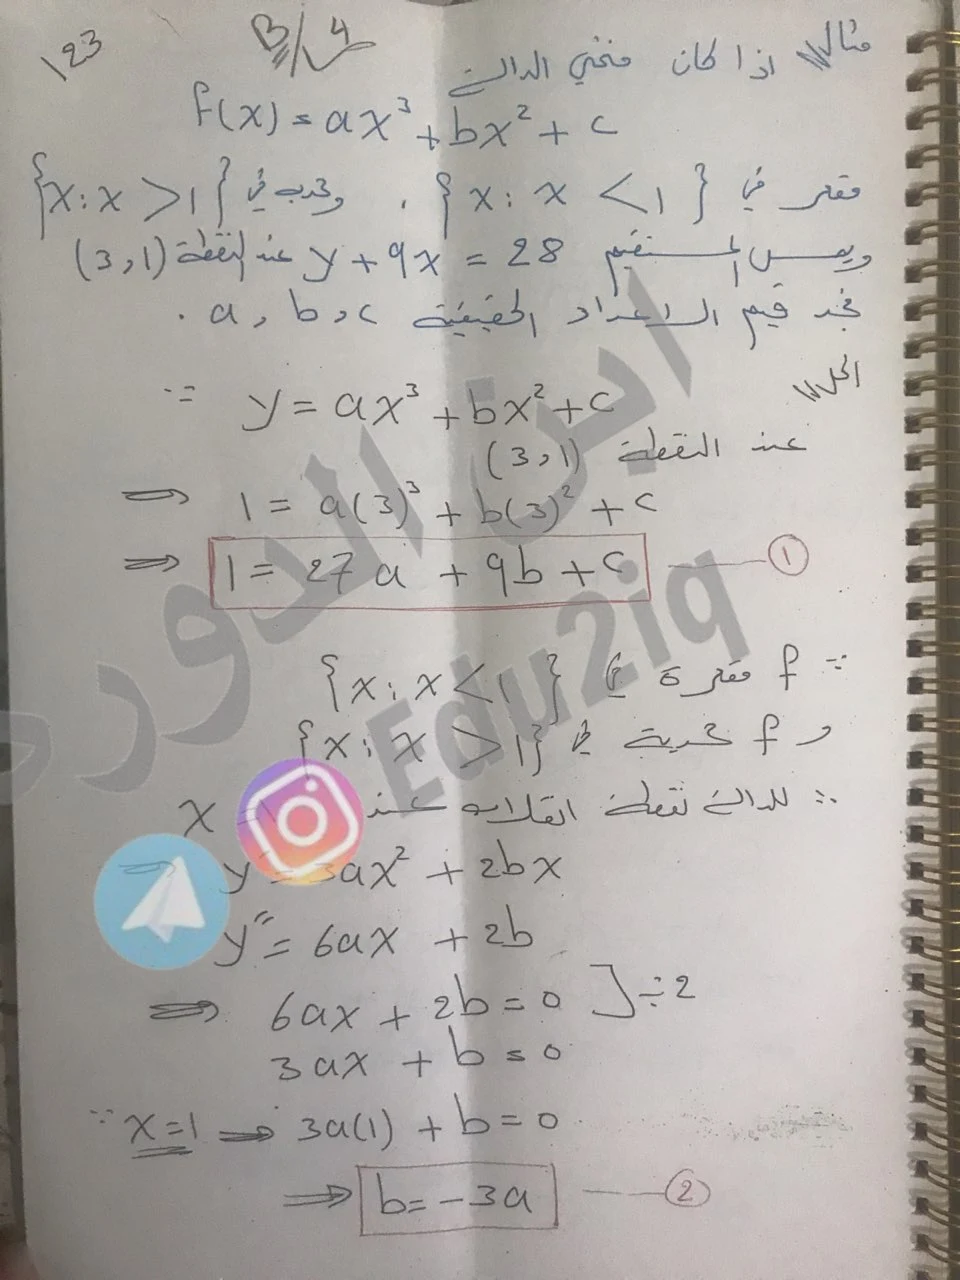 123
B/4
مثال// اذا كان منحني الدالة
f(x) = ax³ + bx² + c
مقعر في {x : x < 1} ، ومحدب في {x : x > 1}
ويمس المستقيم y + 9x = 28 عند النقطة (3,1)
نجد قيم الاعداد الحقيقية a, b, c .
الحل//
∵ y = ax³ + bx² + c
عند النقطة (3,1)
⇒ 1 = a(3)³ + b(3)² + c
⇒ 1 = 27a + 9b + c —— ①
∵ f مقعرة في {x : x < 1}
و f محدبة في {x : x > 1}
∴ للدالة نقطة انقلاب عند x
⇒ y = 3ax² + 2bx
y″ = 6ax + 2b
⇒ 6ax + 2b = 0 ] ÷ 2
3ax + b = 0
∵ x = 1 ⇒ 3a(1) + b = 0
⇒ b = -3a —— ②
ابن الدور
Edu2iq